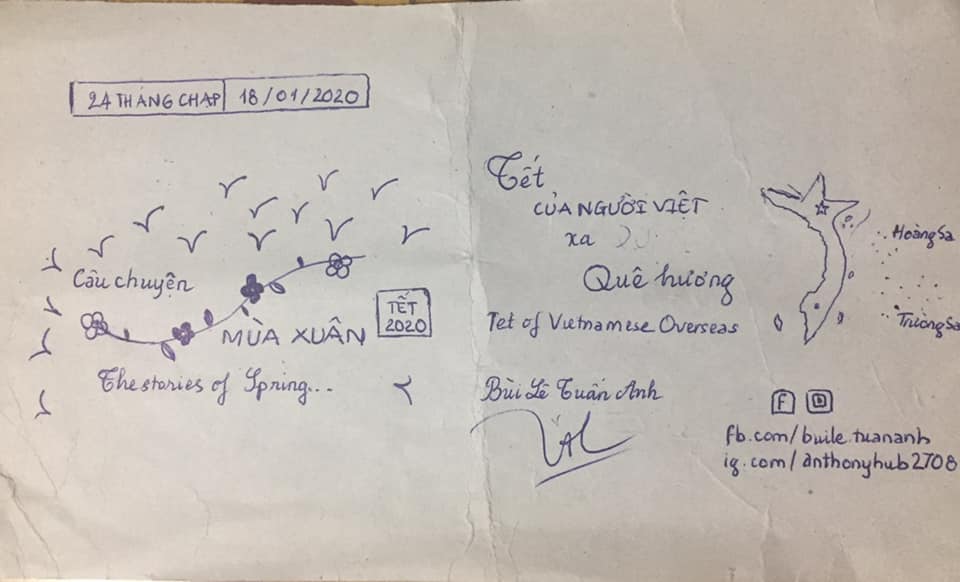 24 THÁNG CHẠP 18/01/2020
Câu chuyện
MÙA XUÂN
TẾT
2020
The stories of Spring...
Tết
CỦA NGƯỜI VIỆT
xa
Quê hương
Tet of Vietnamese Overseas
Hoàng Sa
Trường Sa
Bùi Lê Tuấn Anh
F
fb.com/buile.tuananh
ig.com/anthonyhub2708